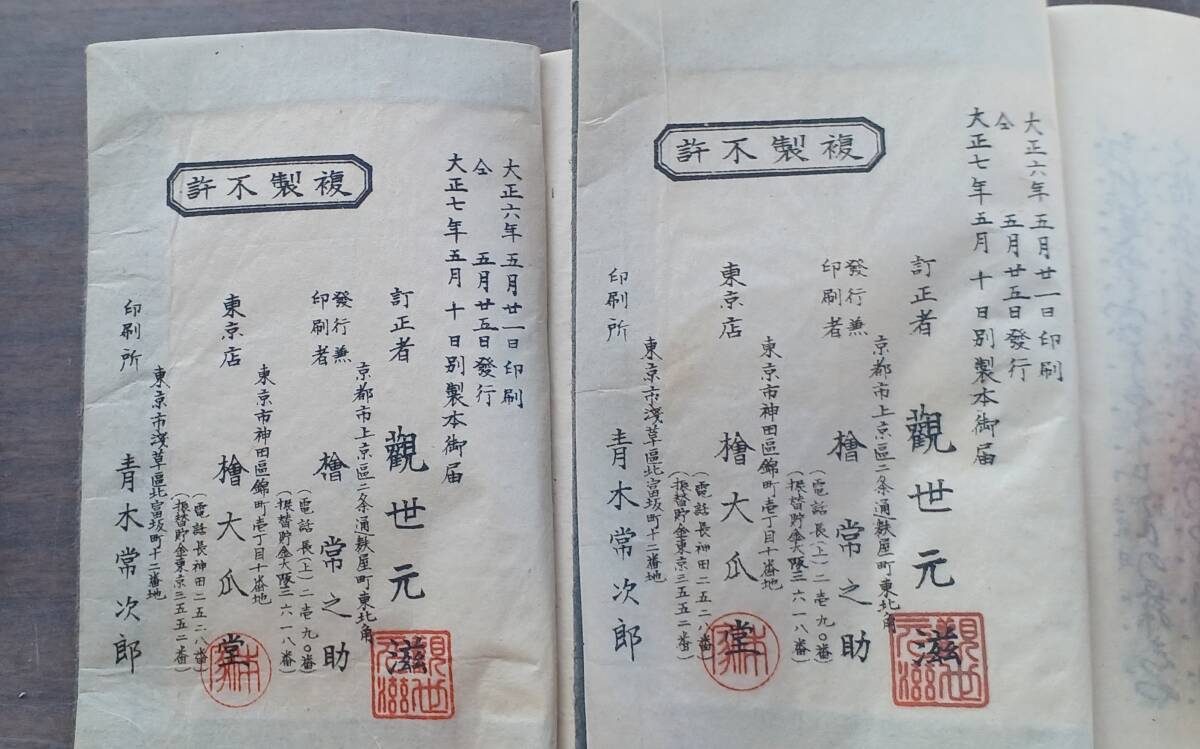 大正六年五月廿一日印刷
仝 五月廿五日發行
大正七年五月十日別製本御届
複製不許
訂正者 觀世元滋
觀世元滋
京都市上京區二条通麸屋町東北角
發行兼
印刷者 檜常之助
(電話長(上)二壱九〇番)
(振替貯金大阪三六一八番)
東京市神田區錦町壱丁目十番地
東京店 檜大瓜堂
(電話長神田二五二八番)
(振替貯金東京三五五二番)
東京市淺草區北富坂町十二番地
印刷所 青木常次郎
大正六年五月廿一日印刷
仝 五月廿五日發行
大正七年五月十日別製本御届
複製不許
訂正者 觀世元滋
觀世元滋
京都市上京區二条通麸屋町東北角
發行兼
印刷者 檜常之助
(電話長(上)二壱九〇番)
(振替貯金大阪三六一八番)
東京市神田區錦町壱丁目十番地
東京店 檜大瓜堂
(電話長神田二五二八番)
(振替貯金東京三五五二番)
東京市淺草區北富坂町十二番地
印刷所 青木常次郎